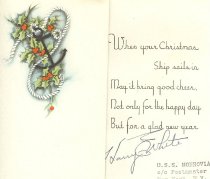 When your Christmas
Ship sails in
May it bring good cheer,
Not only for the happy day
But for a glad new year.
White
U.S.S.
c/o Postmaster